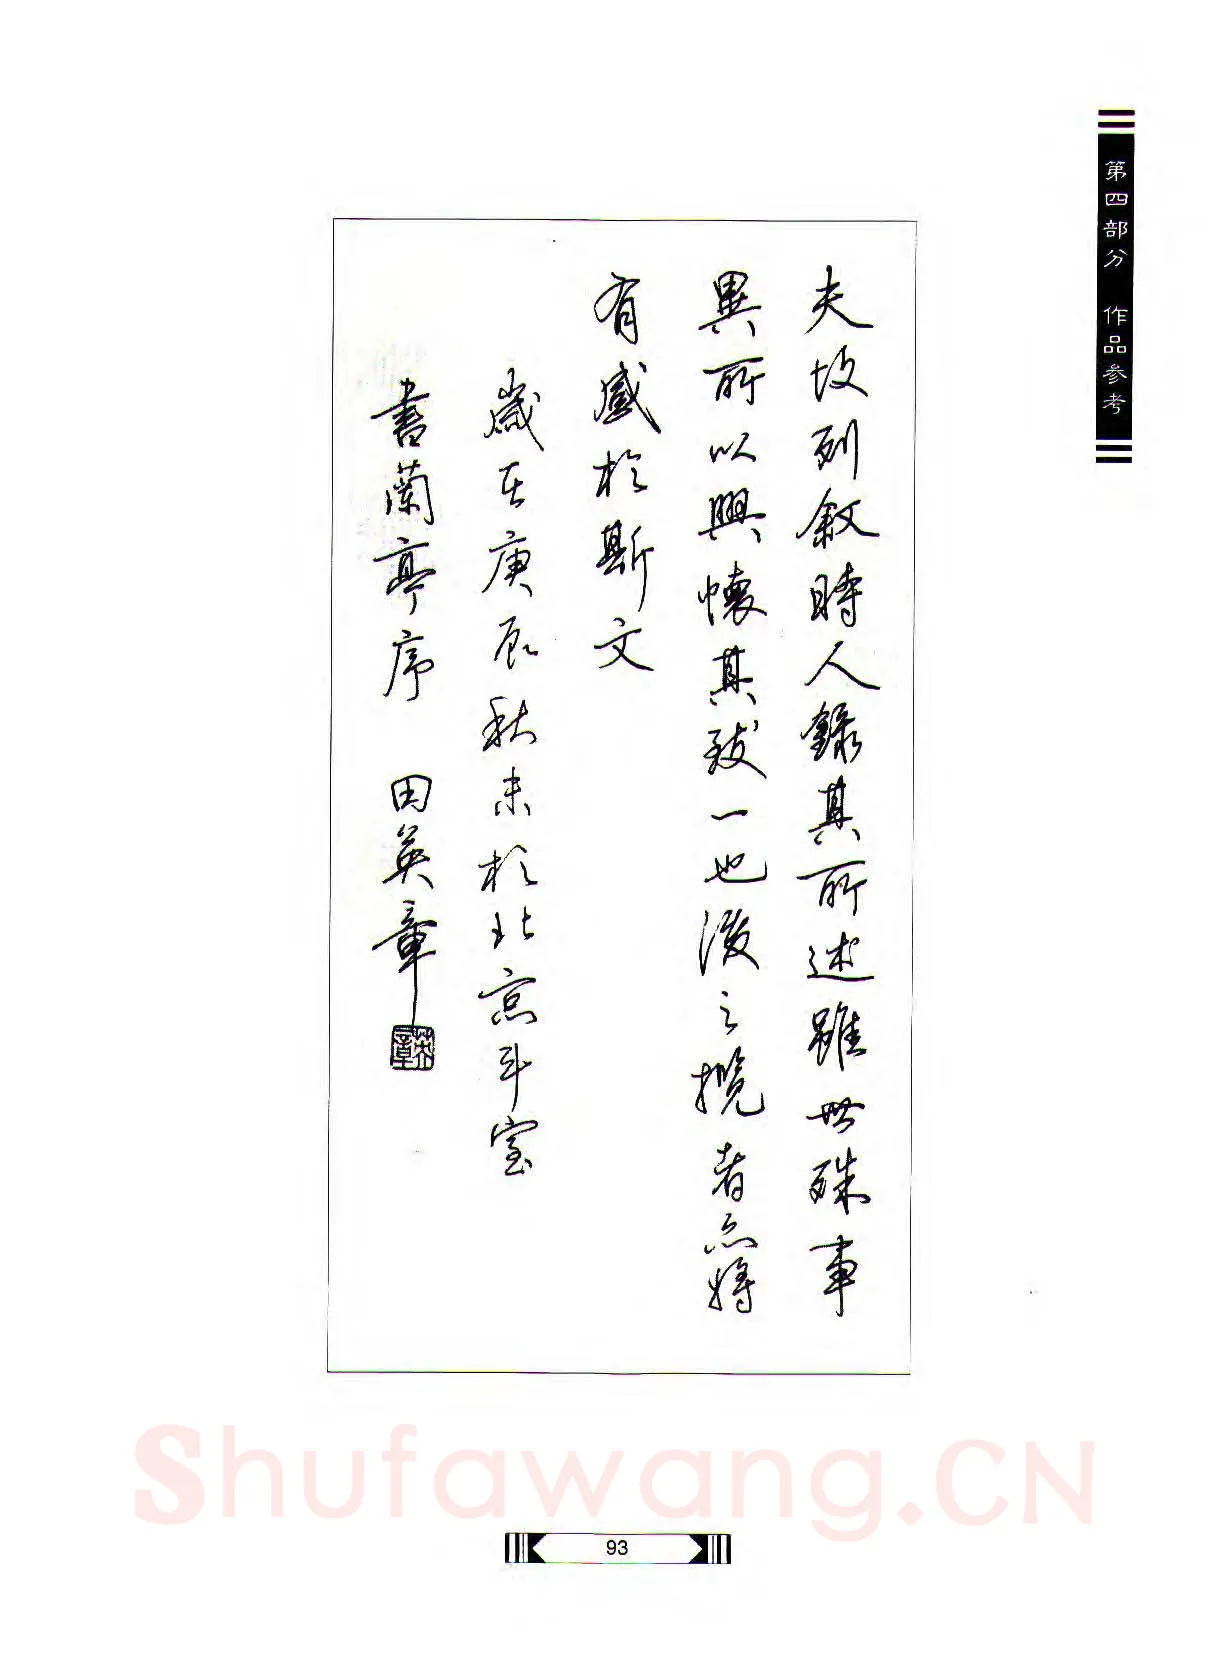 第四部分 作品参考
夫故列敘時人錄其所述雖世殊事
異所以興懷其致一也後之攬者亦將
有感於斯文
歲在庚辰秋末於北京斗室
書蘭亭序 田英章
英章
93
Shufawang.CN